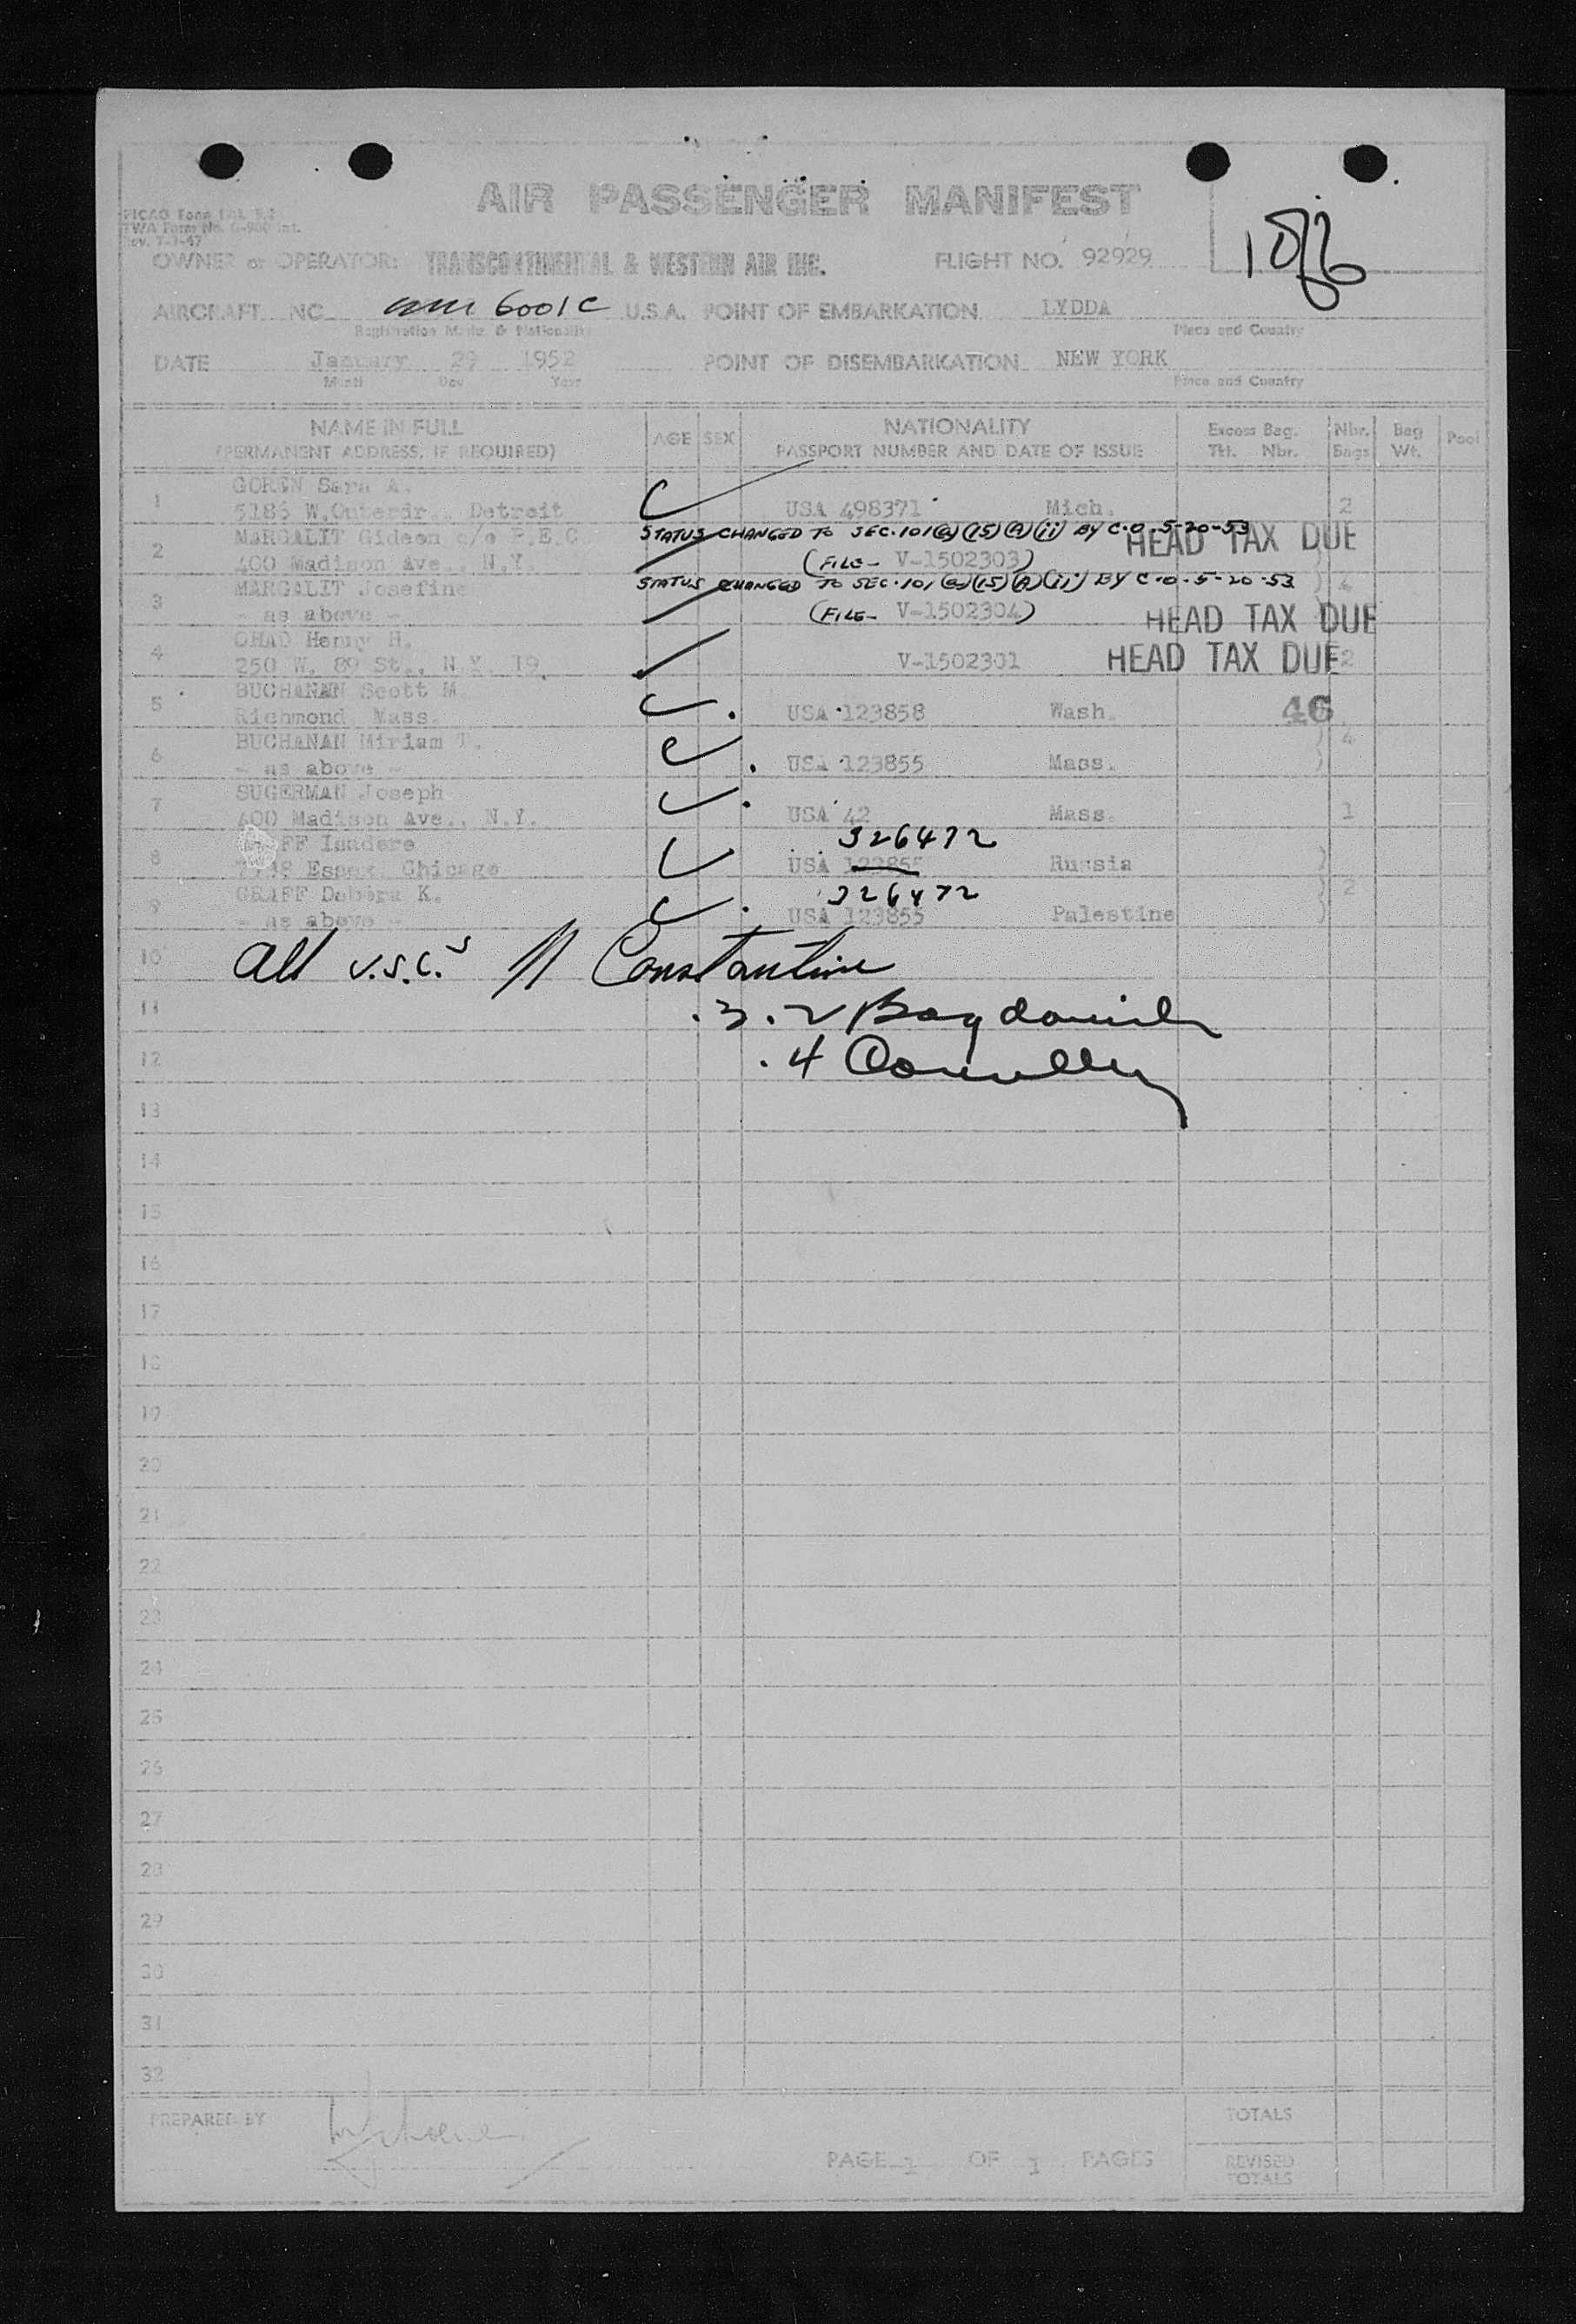 AIR PASSENGER MANIFEST
TWA Form No.
Rev. 7-1-47
1086
OWNER or OPERATOR: TRANSCONTINENTAL & WESTERN AIR INC. FLIGHT NO. 92929
AIRCRAFT NC 6001C U.S.A. POINT OF EMBARKATION LYDDA
Registration Marks & Nationality Place and Country
DATE January 29 1952 POINT OF DISEMBARKATION NEW YORK
Month Day Year Place and Country
NAME IN FULL AGE SEX NATIONALITY Excess Bag. Nbr. Bag Pool
(PERMANENT ADDRESS, IF REQUIRED) PASSPORT NUMBER AND DATE OF ISSUE Tkt. Nbr. Bags Wt.
GOREN Sara A.
1 5186 W.Outerdr., Detroit USA 498371 Mich. 2
MARGALIT Gideon c/o STATUS CHANGED TO SEC.101(a)(15)(A)(ii) BY C.O. 5-20-53 HEAD TAX DUE
2 400 Madison Ave., N.Y. (FILE- V-1502303)
MARGALIT Josefine STATUS CHANGED TO SEC.101(a)(15)(A)(ii) BY C.O. 5-20-53 4
3 - as above - (FILE- V-1502304) HEAD TAX DUE
OHAD Henry H.
4 250 W. 89 St., N.Y. 19. V-1502301 HEAD TAX DUE 2
BUCHANAN Scott M.
5 Richmond, Mass. USA 123858 Wash. 46
BUCHANAN Miriam T. 4
6 - as above - USA 123855 Mass.
SUGERMAN Joseph
7 400 Madison Ave., N.Y. USA 42 Mass. 1
FF Isadore 326472
8 Essex, Chicago USA 123855 Russia
GRAFF Debora K. 326472 2
9 - as above - USA 123855 Palestine
10 All U.S.C.'s Constantine
11 .3.2 Bagdovich
12 .4 Connelly
13
14
15
16
17
18
19
20
21
22
23
24
25
26
27
28
29
30
31
32
PREPARED BY TOTALS
PAGE 1 OF 1 PAGES REVISED
TOTALS